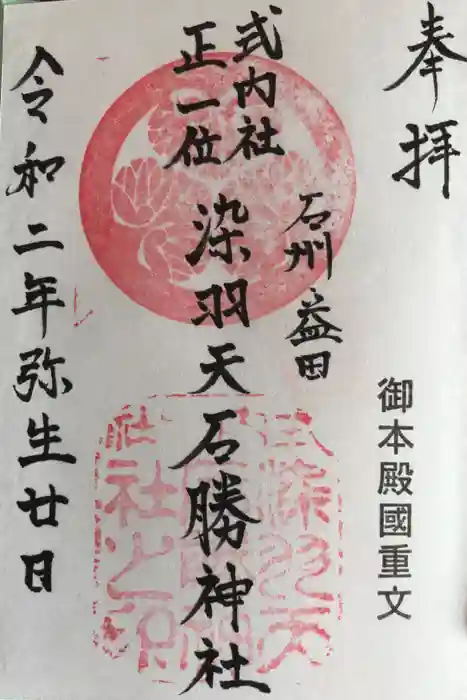 奉拝
御本殿國重文
石州益田
式内社
正一位
染羽天石勝神社
令和二年弥生廿日